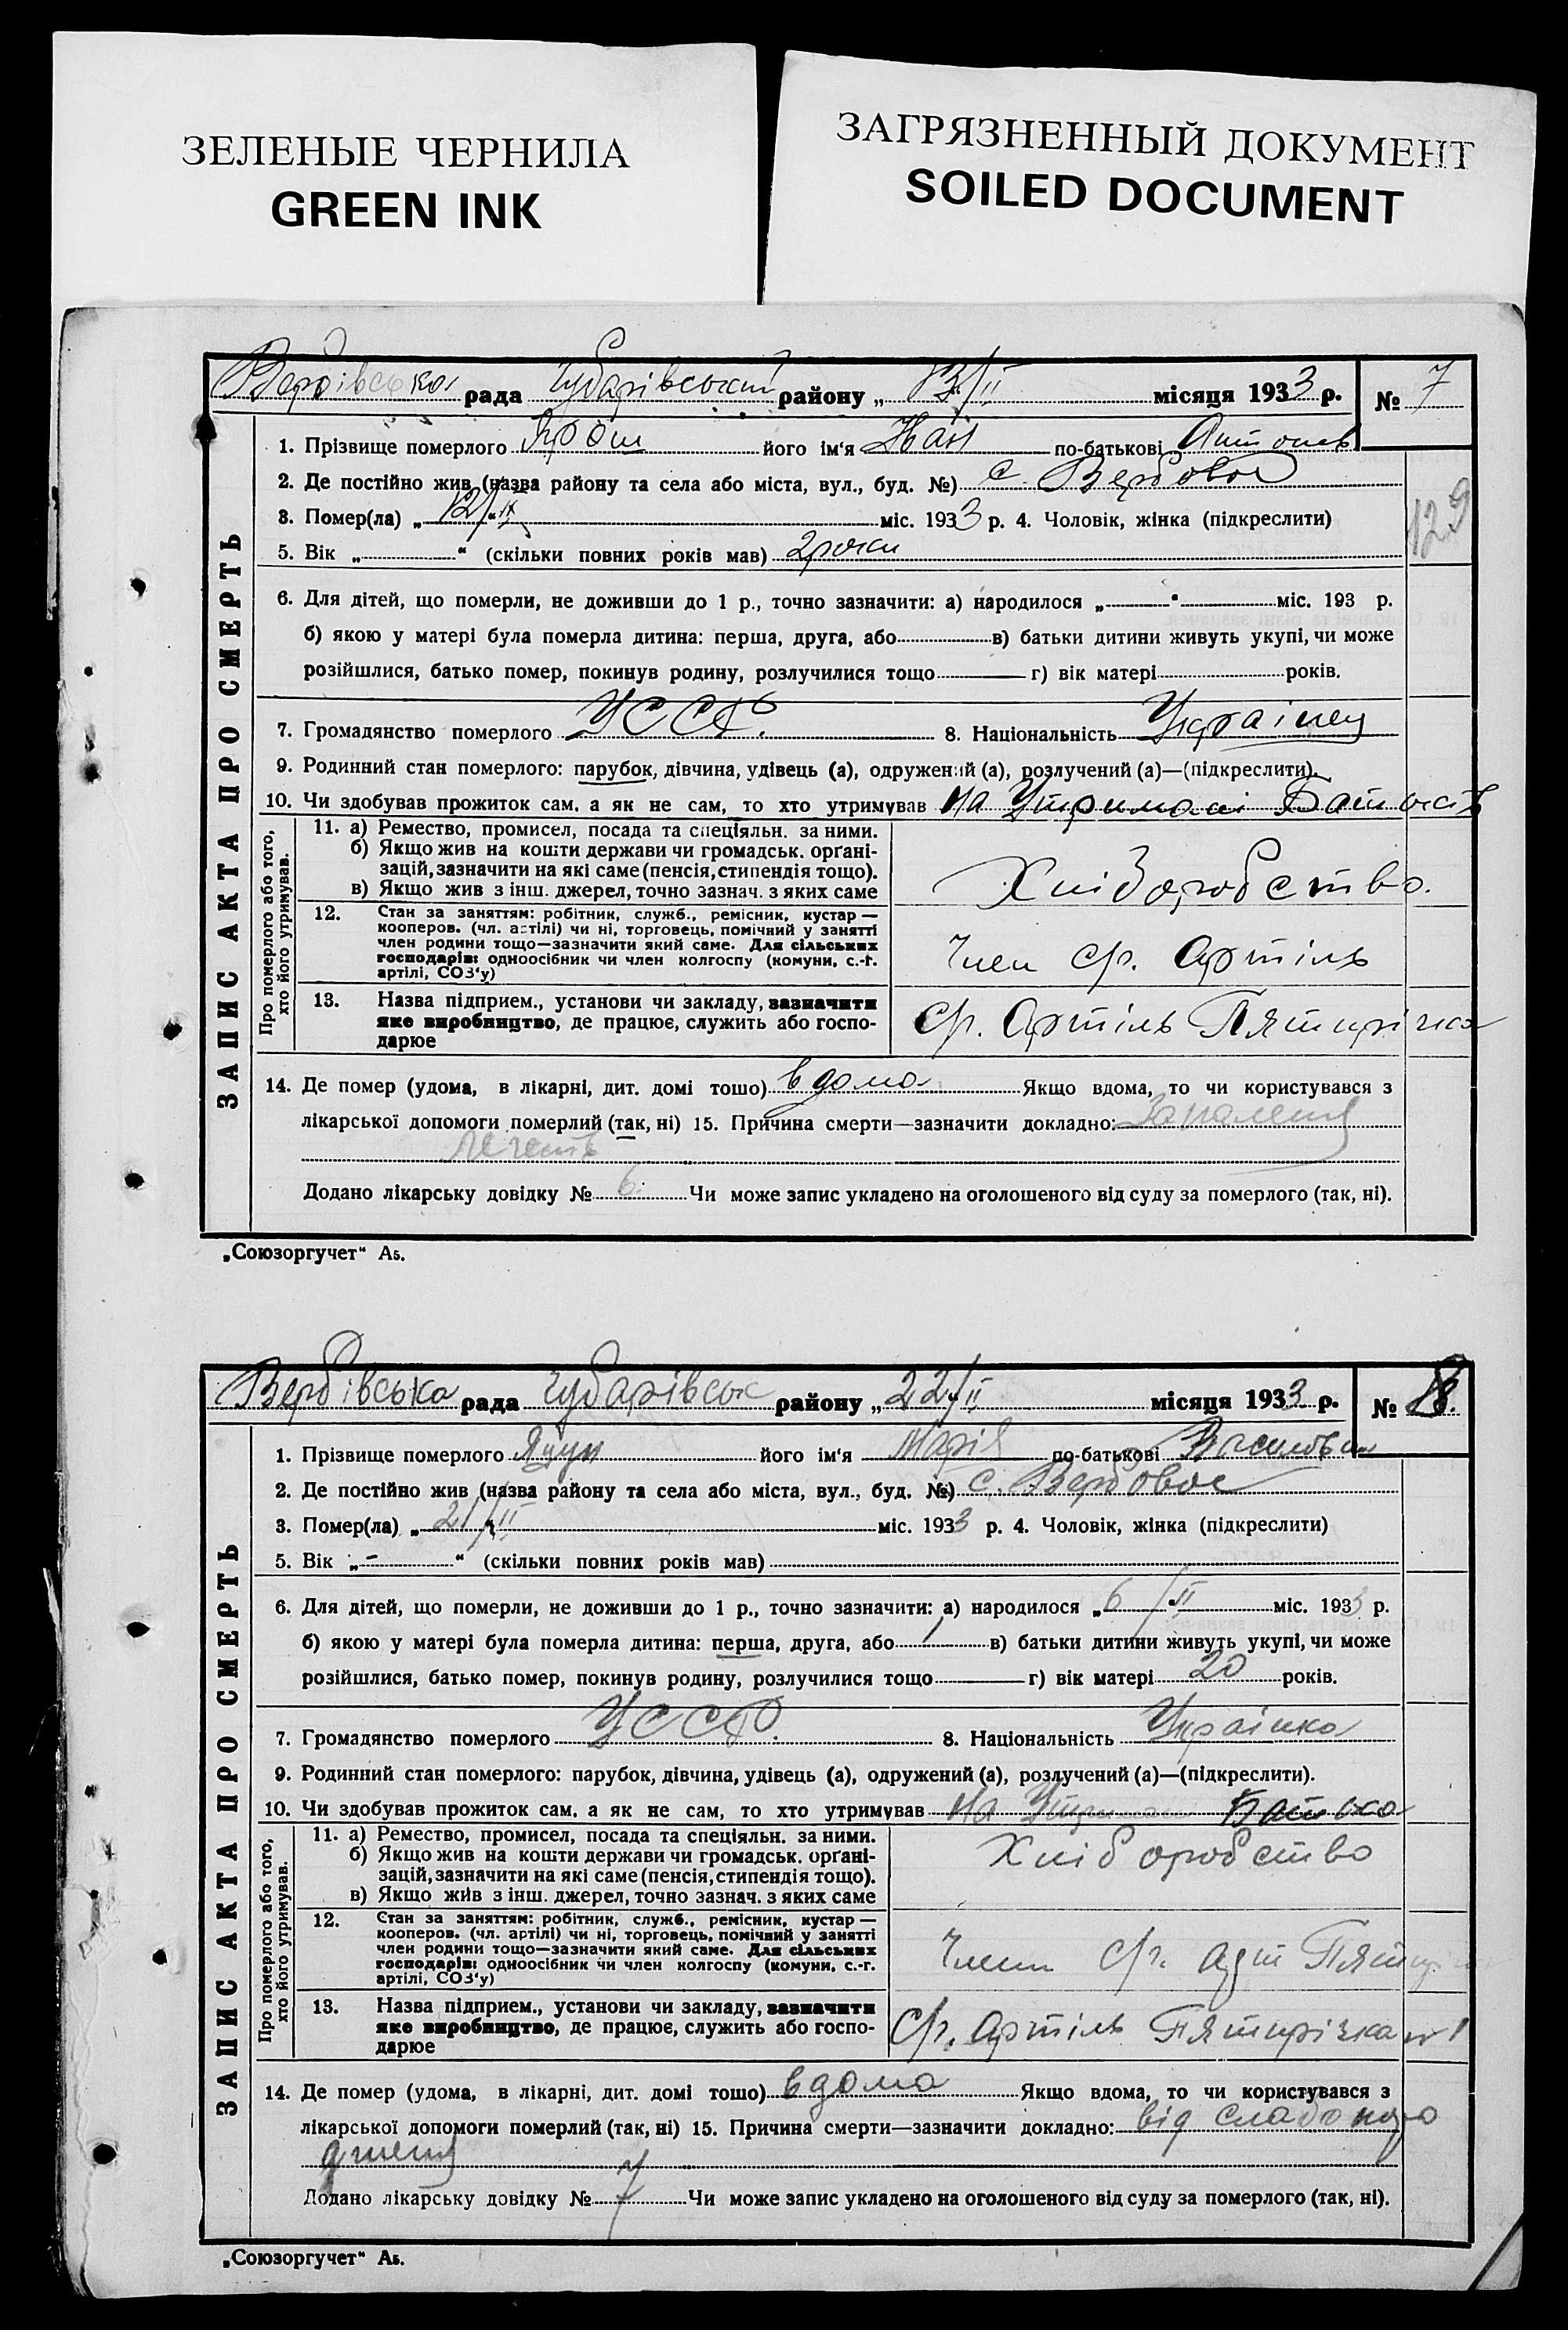 ЗЕЛЕНЫЕ ЧЕРНИЛА
GREEN INK
ЗАГРЯЗНЕННЫЙ ДОКУМЕНТ
SOILED DOCUMENT
Вербівська рада Чубарівський району „13/II місяця 1933 р. № 7
1. Прізвище померлого Ярош його ім'я по-батькові Антонов
2. Де постійно жив (назва району та села або міста, вул., буд. №) с. Вербовое
3. Помер(ла) „12/“ міс. 1933 р. 4. Чоловік, жінка (підкреслити)
129
5. Вік „ “ (скільки повних років мав) 2 роки
6. Для дітей, що померли, не доживши до 1 р., точно зазначити: а) народилося „ “ міс. 193 р.
б) якою у матері була померла дитина: перша, друга, або в) батьки дитини живуть укупі, чи може
розійшлися, батько помер, покинув родину, розлучилися тощо г) вік матері років.
7. Громадянство померлого УССР. 8. Національність Українец
9. Родинний стан померлого: парубок, дівчина, удівець (а), одружений (а), розлучений (а)—(підкреслити).
10. Чи здобував прожиток сам, а як не сам, то хто утримував на Утримані
Про померлого або того, хто його утримував.
11. а) Ремество, промисел, посада та спеціяльн. за ними.
б) Якщо жив на кошти держави чи громадськ. орґані-
зацій, зазначити на які саме (пенсія, стипендія тощо).
в) Якщо жив з інш. джерел, точно зазнач. з яких саме
Хліборобство.
12. Стан за заняттям: робітник, служб., ремісник, кустар —
кооперов. (чл. артілі) чи ні, торговець, помічний у занятті
член родини тощо—зазначити який саме. Для сільських
господарів: одноосібник чи член колгоспу (комуни, с.-г.
артілі, СОЗ'у)
Член с/г. артіль
13. Назва підприєм., установи чи закладу, зазначити
яке виробництво, де працює, служить або госпо-
дарює
с/г. Артіль Пятирічка
14. Де помер (удома, в лікарні, дит. домі тошо) вдома Якщо вдома, то чи користувався з
лікарської допомоги померлий (так, ні) 15. Причина смерти—зазначити докладно: Запаленя
Легень
Додано лікарську довідку № 6. Чи може запис укладено на оголошеного від суду за померлого (так, ні).
ЗАПИС АКТА ПРО СМЕРТЬ
„Союзоргучет“ А5.
Вербівська рада Чубарівськ району „22/II місяця 1933 р. № 8.
1. Прізвище померлого Яцун його ім'я Марія по-батькові
2. Де постійно жив (назва району та села або міста, вул., буд. №) с. Вербовое
3. Помер(ла) „21/II міс. 1933 р. 4. Чоловік, жінка (підкреслити)
5. Вік „-“ (скільки повних років мав)
6. Для дітей, що померли, не доживши до 1 р., точно зазначити: а) народилося „6/II міс. 1933 р.
б) якою у матері була померла дитина: перша, друга, або 1 в) батьки дитини живуть укупі, чи може
розійшлися, батько помер, покинув родину, розлучилися тощо г) вік матері 20 років.
7. Громадянство померлого УССР. 8. Національність Українка
9. Родинний стан померлого: парубок, дівчина, удівець (а), одружений (а), розлучений (а)—(підкреслити).
10. Чи здобував прожиток сам, а як не сам, то хто утримував на Батька
Про померлого або того, хто його утримував.
11. а) Ремество, промисел, посада та спеціяльн. за ними.
б) Якщо жив на кошти держави чи громадськ. орґані-
зацій, зазначити на які саме (пенсія, стипендія тощо).
в) Якщо жив з інш. джерел, точно зазнач. з яких саме
Хліборобство
12. Стан за заняттям: робітник, служб., ремісник, кустар —
кооперов. (чл. артілі) чи ні, торговець, помічний у занятті
член родини тощо—зазначити який саме. Для сільських
господарів: одноосібник чи член колгоспу (комуни, с.-г.
артілі, СОЗ'у)
Член с/г. арт
13. Назва підприєм., установи чи закладу, зазначити
яке виробництво, де працює, служить або госпо-
дарює
с/г. Артіль Пятирічка № 1
14. Де помер (удома, в лікарні, дит. домі тошо) вдома Якщо вдома, то чи користувався з
лікарської допомоги померлий (так, ні) 15. Причина смерти—зазначити докладно: від слабо
Додано лікарську довідку № 7 Чи може запис укладено на оголошеного від суду за померлого (так, ні).
ЗАПИС АКТА ПРО СМЕРТЬ
„Союзоргучет“ А5.